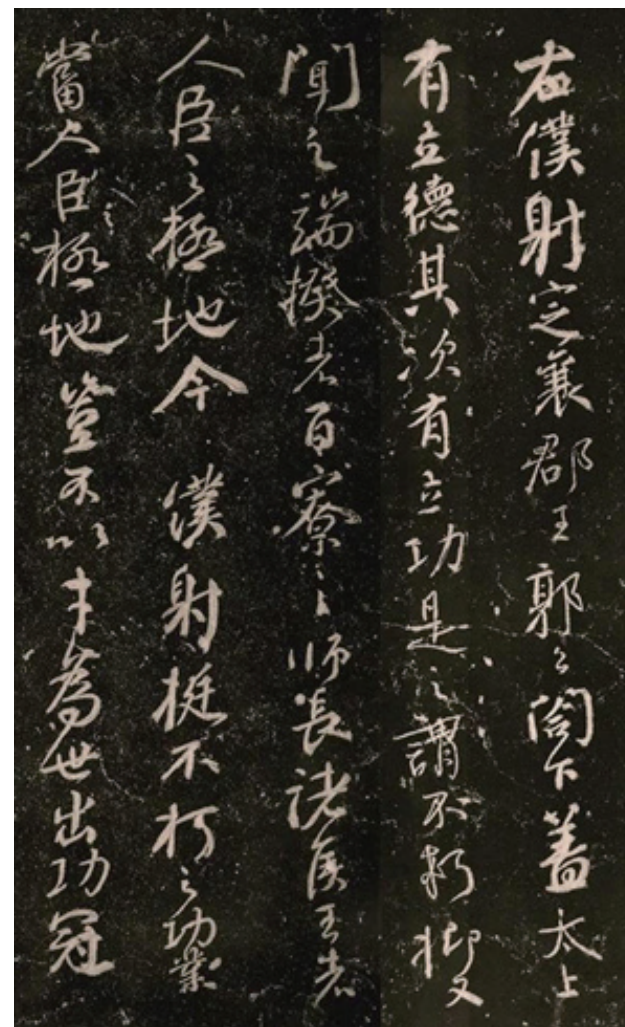 右僕射定襄郡王郭公閤下蓋太上
有立德其次有立功是之謂不朽抑又
聞之端揆者百寮之師長諸侯王者
人臣之極地今僕射挺不朽之功業
當人臣之極地豈不以才為世出功冠